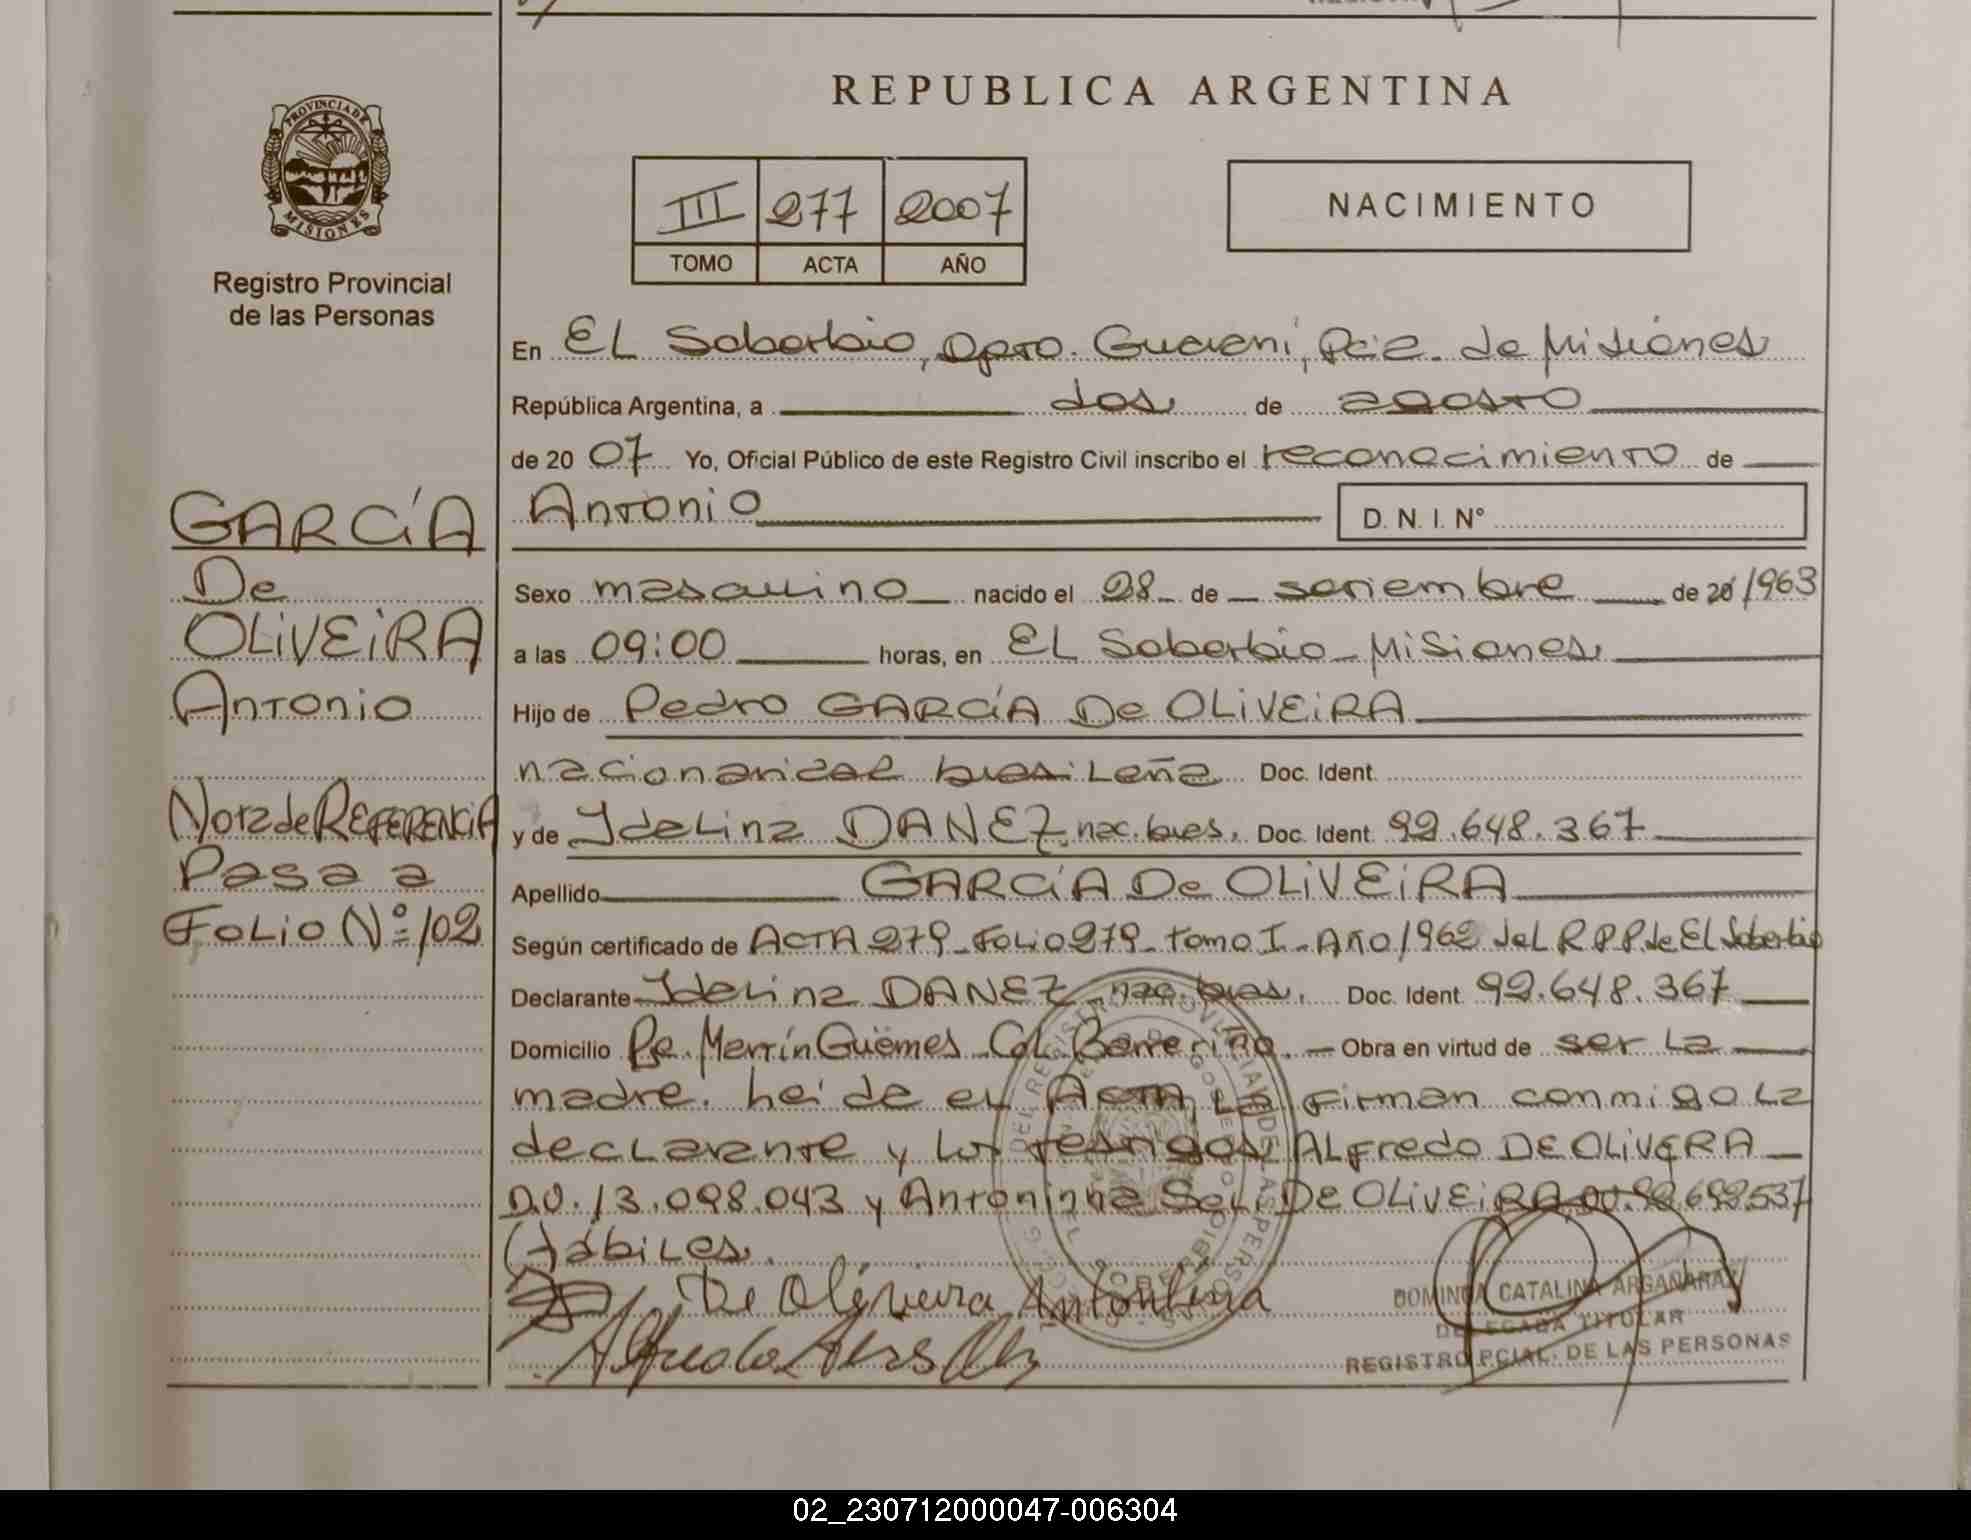 REPUBLICA ARGENTINA
PROVINCIA DE
MISIONES
Registro Provincial
de las Personas
III 277 2007
TOMO ACTA AÑO
NACIMIENTO
En EL Soberbio, Dpto. Guarani, Pcia. de Misiones
República Argentina, a dos de agosto
de 2007 Yo, Oficial Público de este Registro Civil inscribo el reconocimiento de
Antonio D. N. I. N°
GARCÍA
De
OLIVEIRA
Antonio
Nota de REFERENCIA
Pasa a
FOLIO Nº 102
Sexo masculino nacido el 28 de setiembre de 20 1963
a las 09:00 horas, en EL Soberbio Misiones
Hijo de Pedro GARCÍA De OLIVEIRA
nacionalidad brasileña Doc. Ident.
y de Idelina DANEZ nac. bras. Doc. Ident. 92.648.367
Apellido GARCÍA De OLIVEIRA
Según certificado de ACTA 279 Folio 279 Tomo I Año 1962 del R.P.P. de El Soberbio
Declarante Idelina DANEZ nac. bras. Doc. Ident. 92.648.367
Domicilio Martín Güemes Col. Obra en virtud de ser La
madre. Leída el Acta, La Firman conmigo La
declarante y los testigos ALfredo DE OLIVERA
D.U. 13.098.043 y Antoninha DE OLIVEIRA
Hábiles.
De Oliveira Antonina
Alfredo
DOMINGA CATALINA ARGAÑARAZ
DELEGADA TITULAR
REGISTRO PCIAL. DE LAS PERSONAS
02_230712000047-006304